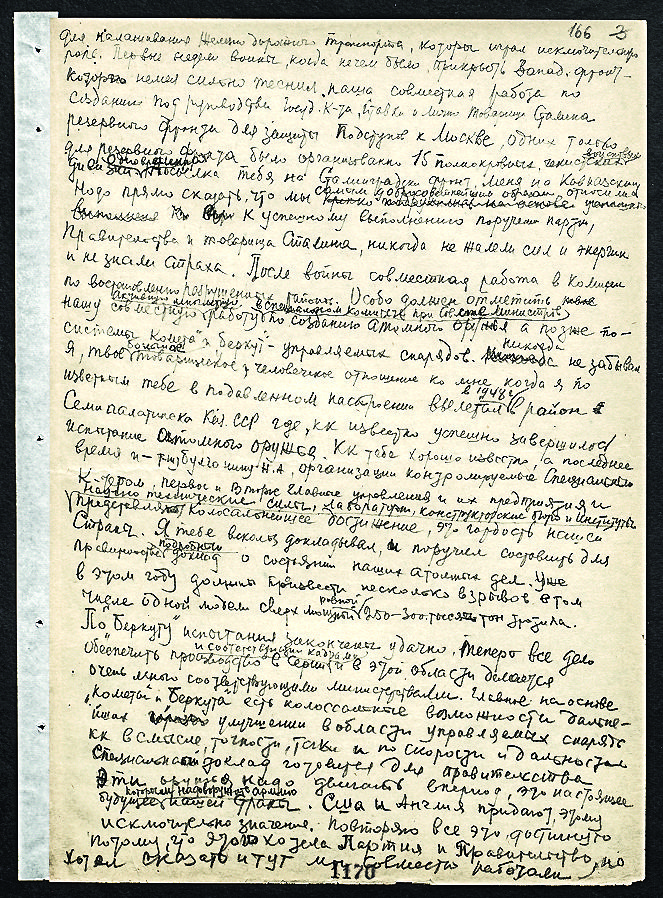 166 2
для налаживания железнодорожного транспорта, которы играл исключительную
роль. Первые недели войны, когда нечем было прикрыть Запад. фронт–
которого немец сильно теснил, наша совместная работа по
созданию под руководством Госуд. К-та, Ставки и лично товарища Сталина
резервного фронта для защиты подступов к Москве, одних только
для резервного фронта было организованно 15 полнокровных, чекистских войсковых
дивизий. Одновременно посылка тебя на Сталинградский фронт, меня на Кавказский
Надо прямо сказать, что мы самым добросовестнейшим образом, относились
к успешному выполнению поручения партии,
Правительства и товарища Сталина, никогда не жалели сил и энергии
и не знали страха. После войны совместная работа в Комиссии
по востановлению разрушенных районов. Особо должен отметить нашу
нашу совместную активную многолетнюю работу в Специальном комитете при Совете Министров по созданию атомного оружия а позже по–
системы „Комета" и „Беркут" – управляемых снарядов. никогда не забывал
я, твое большое товарищеское и человеческое отношение ко мне, когда я по
известным тебе в подавленном настроении вылетал в 1948 г. в район
Семипалатинска Каз. ССР где, кк известно успешно завершилось
испытание атомного оружия. Кк тебе хорошо известно, а последнее
время и т-щу Булганину Н.А, организации контролируемые Специальным
К-тетом, первое и Второе главные управления и их предприятия и
научно технические силы, лаборатории, конструкторские бюро и институты
представляют колосальнейшее достижение, это гордость нашей
страны. Я тебе вскользь докладывал, и поручил составить для
правительства подробный доклад о состоянии наших атомных дел. Уже
в этом году должны произвести несколько взрывов в том
числе одной модели сверх мощной равной 250–300 тысяч тон тротила.
По „Беркуту" испытания закончены удачно. Теперь все дело
обеспечить производство в серии и соответствующими кадрами и в этой области делается
очень много соответствующими министерствами. Главное на основе
„Кометы" и „Беркута" есть колоссальные возможности дальне–
йших улучшении в области управляемых снарядов
кк в смысле, точности, так и по скорости и дальности
Специальный доклад готовится для правительства
Эти оружия надо двигать вперед, это настоящее
будущее которым надо вооружить армию нашей страны. США и Англия придают, этому
исключительно значение. Повторяю все это достигнуто
потому, что этого хотела Партия и Правительство, но
хотел сказать и тут мы совместно работали
1170